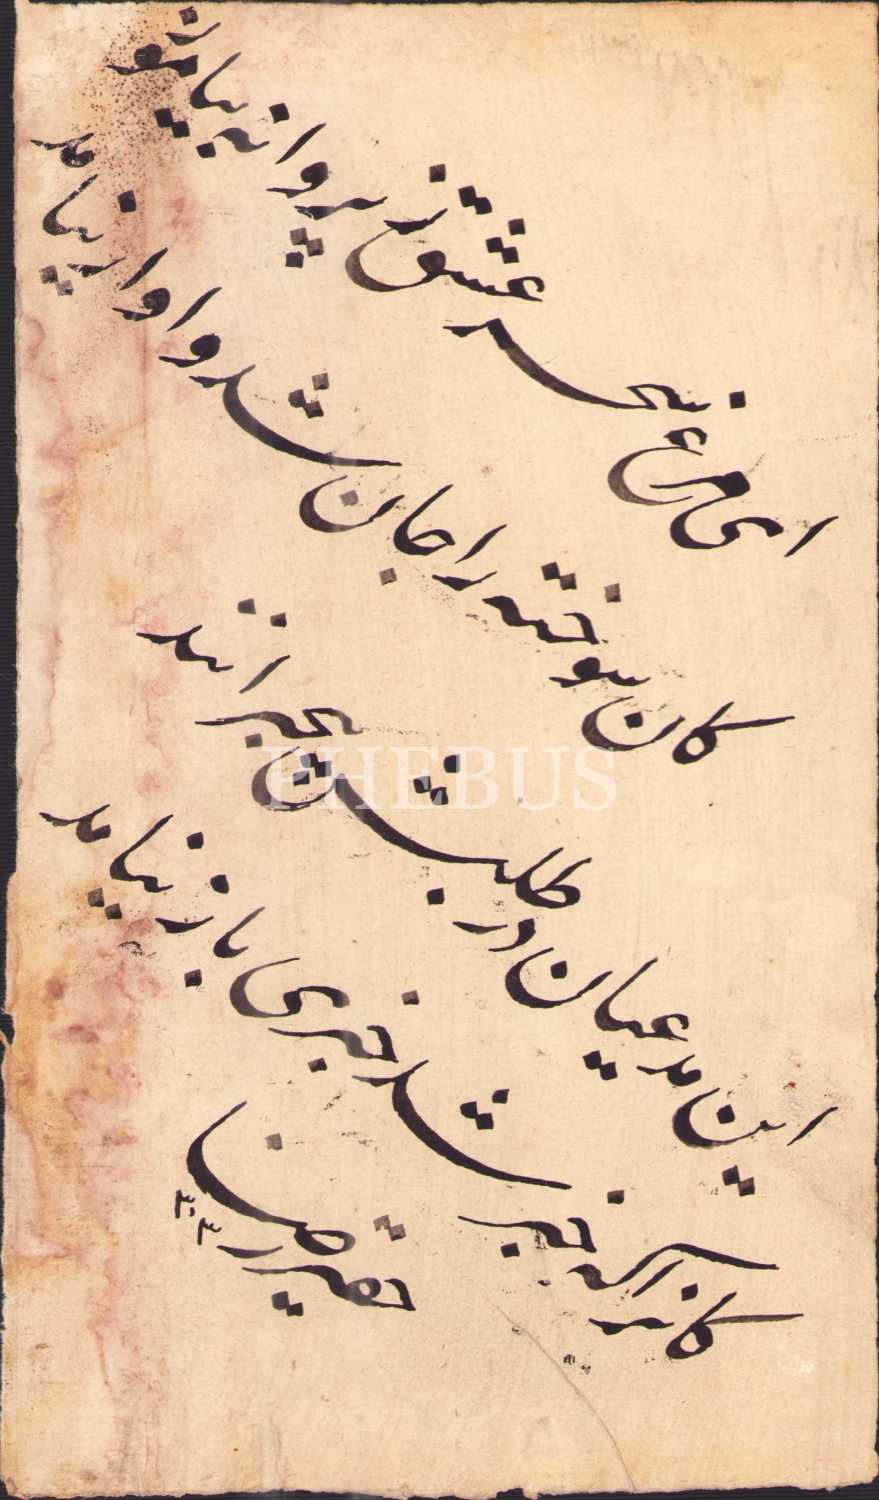 ای مرغ سحر عشق ز پروانه بیاموز
کان سوخته را جان شد و آواز نیامد
این مدعیان در طلبش بیخبرانند
کانرا که خبر شد خبری باز نیامد
حقیر رضا
PHEBUS